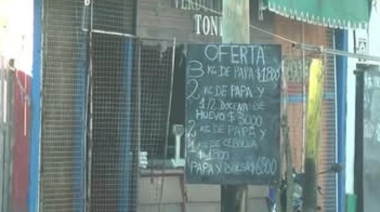 VERDU
TONI
OFERTA
3 KG DE PAPA $1800
2 KG DE PAPA Y
1/2 DOCENA DE
HUEVO $3000
2 KG DE PAPA Y
1 KG DE CEBOLLA
$1800
PAPA X BOLSA $6500